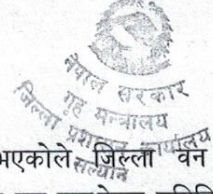 नेपाल सरकार
गृह मन्त्रालय
जिल्ला प्रशासन कार्यालय
सल्यान
भएकोले जिल्ला वन